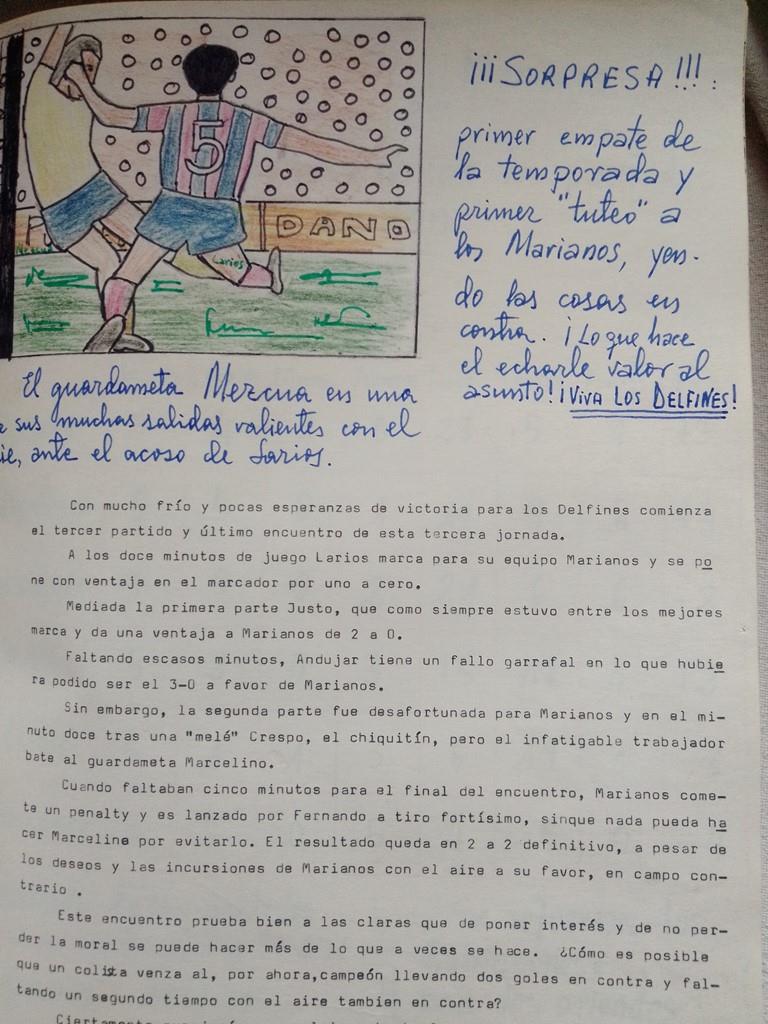 5
DANO
Larios
¡¡¡SORPRESA!!!:
primer empate de
la temporada y
primer "tuteo" a
los Marianos, yen-
do las cosas en
contra. ¡Lo que hace
el echarle valor al
asunto! ¡VIVA LOS DELFINES!
El guardameta Mezcua en una
sus muchas salidas valientes con el
ie, ante el acoso de Larios.
Con mucho frío y pocas esperanzas de victoria para los Delfines comienza
el tercer partido y último encuentro de esta tercera jornada.
A los doce minutos de juego Larios marca para su equipo Marianos y se po
ne con ventaja en el marcador por uno a cero.
Mediada la primera parte Justo, que como siempre estuvo entre los mejores
marca y da una ventaja a Marianos de 2 a 0.
Faltando escasos minutos, Andujar tiene un fallo garrafal en lo que hubie
ra podido ser el 3-0 a favor de Marianos.
Sin embargo, la segunda parte fue desafortunada para Marianos y en el mi-
nuto doce tras una "melé" Crespo, el chiquitín, pero el infatigable trabajador
bate al guardameta Marcelino.
Cuando faltaban cinco minutos para el final del encuentro, Marianos come-
te un penalty y es lanzado por Fernando a tiro fortísimo, sinque nada pueda ha
cer Marceline por evitarlo. El resultado queda en 2 a 2 definitivo, a pesar de
los deseos y las incursiones de Marianos con el aire a su favor, en campo con-
trario .
Este encuentro prueba bien a las claras que de poner interés y de no per-
der la moral se puede hacer más de lo que a veces se hace. ¿Cómo es posible
que un colista venza al, por ahora,campeón llevando dos goles en contra y fal-
tando un segundo tiempo con el aire tambien en contra?